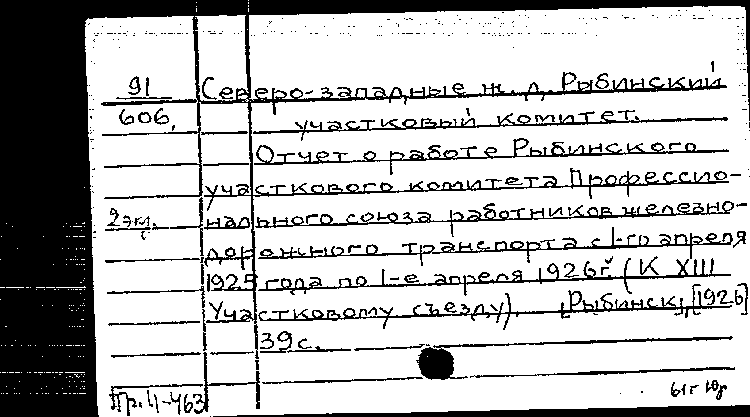 91
606,
Северо-западные ж. д. Рыбинский
участковый комитет.
Отчет о работе Рыбинского
участкового комитета Профессио-
2 экз.
нального союза работников железно-
дорожного транспорта с 1-го апреля
1925 года по 1-е апреля 1926 г. (К XIII
Участковому съезду). [Рыбинск], [1926]
39 с.
Пр. 11-463
61 г